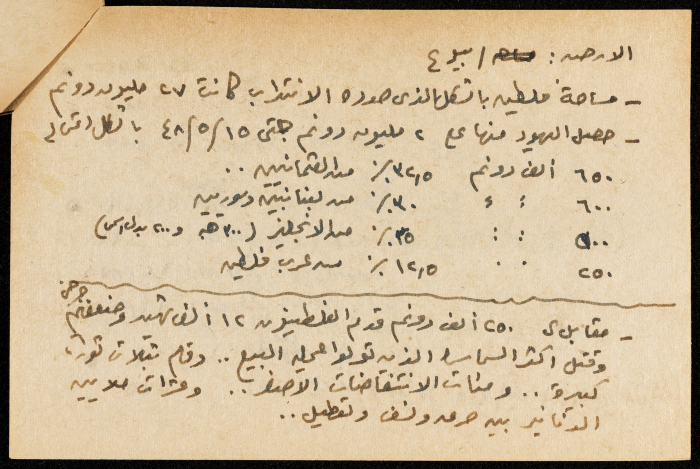 الارض : / بيع
– مساحة فلسطين بالشكل الذي حدده الانتداب كانت ٢٧ مليون دونم
– حصل اليهود منها على ٢ مليون دونم حتى ١٥/٥/٤٨ بالشكل التالي
٦٥٠ الف دونم ٣٢,٥٪ من العثمانيين ..
٦٠٠ " " ٣٠٪ من لبنانيين وسوريين
٥٠٠ : : ٢٥٪ من الانجليز (٣٠٠ هبة و ٢٠٠ بدل اسمي)
٢٥٠ . . ١٢,٥٪ من عرب فلسطين
– مقابل ٢٥٠ الف دونم قدم الفلسطينيون ١٢ الف شهيد وضعفهم جرحى
وقتل اكثر السماسرة الذين تولوا عملية البيع .. وقام بثلاث ثورات
كبيرة .. ومئات الانتفاضات الاصغر .. وعشرات ملايين
الدنانير بين حرق ونسف وتعطيل ..